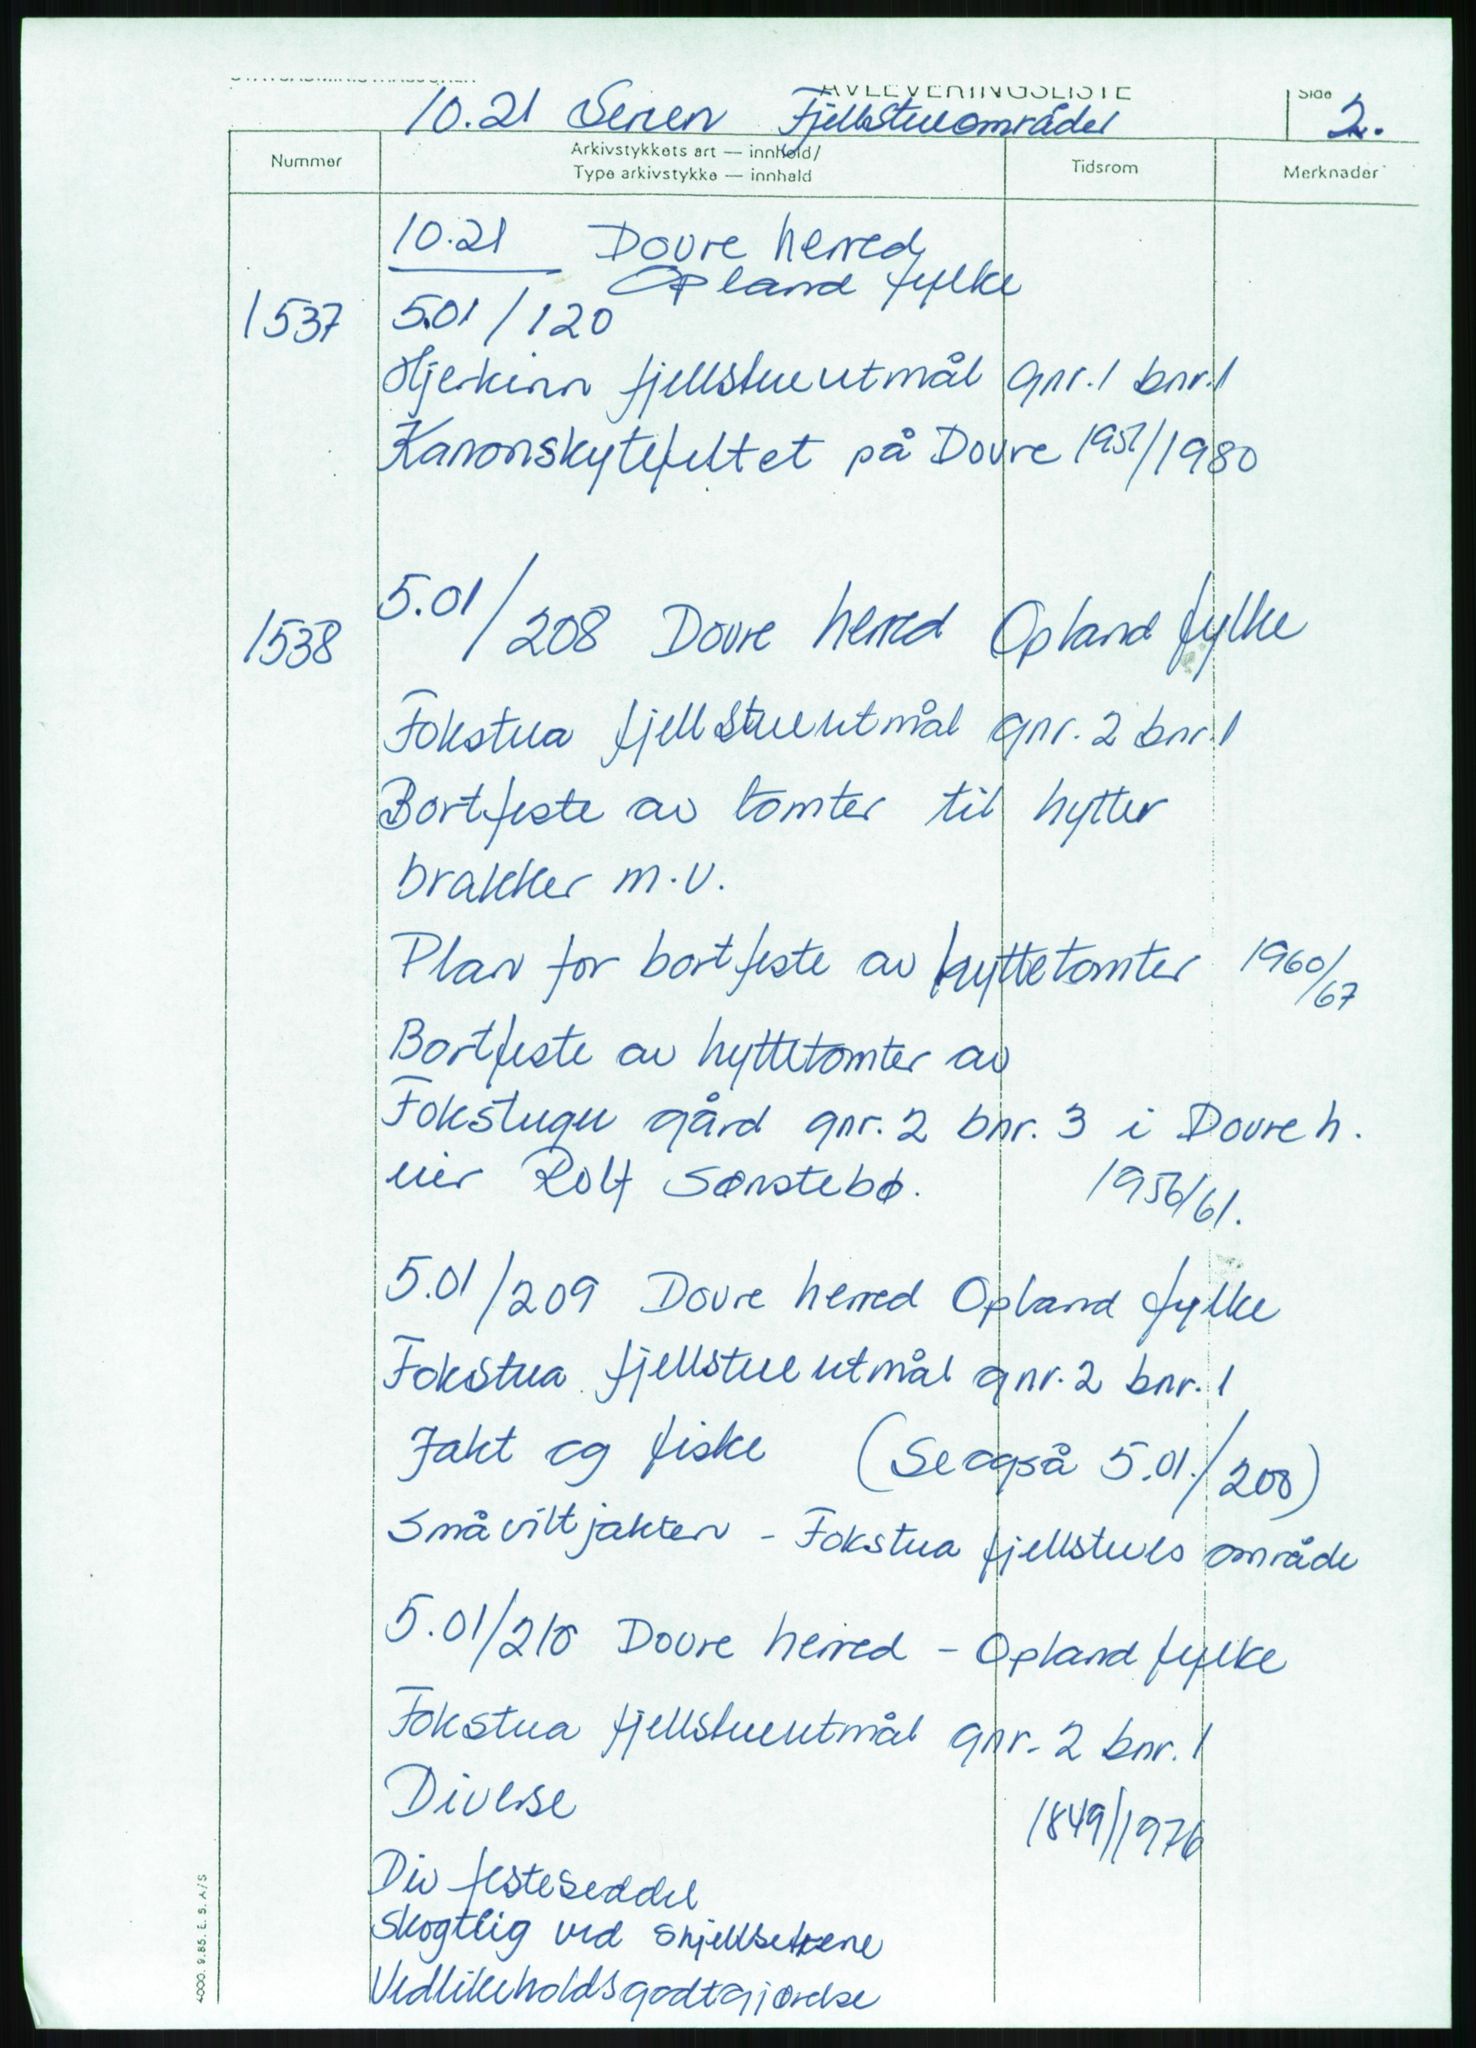 AVLEVERINGSLISTE
Side
10.21 Serien Fjellstueområder 2.
Nummer
Arkivstykkets art — innhold/
Type arkivstykke — innhald
Tidsrom
Merknader
10.21 Dovre herred
Opland fylke
1537 5.01/120
Hjerkinn fjellstueutmål gnr.1 bnr.1
Kanonskytefeltet på Dovre 1957/1980
1538 5.01/208 Dovre herred Opland fylke
Fokstua fjellstueutmål gnr. 2 bnr.1
Bortfeste av tomter til hytter
brakker m.v.
Plan for bortfeste av hyttetomter 1960/67
Bortfeste av hyttetomter av
Fokstugu gård gnr. 2 bnr. 3 i Dovre h.
eier Rolf Sønstebø. 1956/61.
5.01/209 Dovre herred Opland fylke
Fokstua fjellstueutmål gnr. 2 bnr. 1
Jakt og fiske (Se også 5.01./208)
Småviltjakten - Fokstua fjellstues område
5.01/210 Dovre herred - Opland fylke
Fokstua fjellstueutmål gnr. 2 bnr. 1
Diverse 1849/1976
Div festeseddel
Skogtlig ved
Vedlikeholdsgodtgjørelse
4000. 9.85. E. S. A/S